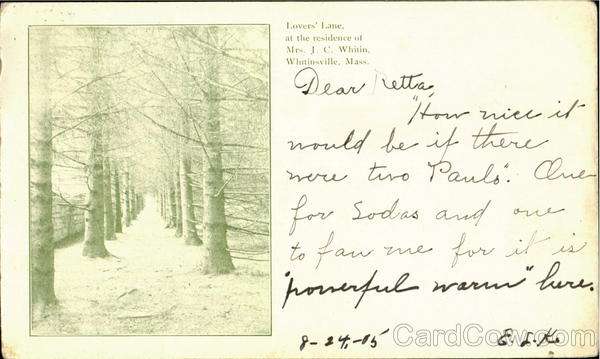 Lovers' Lane,
at the residence of
Mrs. J. C. Whitin,
Whitinsville, Mass.
Dear Retta,
"How nice it
would be if there
were two Pauls". One
for Sodas and one
to fan me for it is
"powerful warm" here.
8-24-05
E. L. K.
CardCow.com